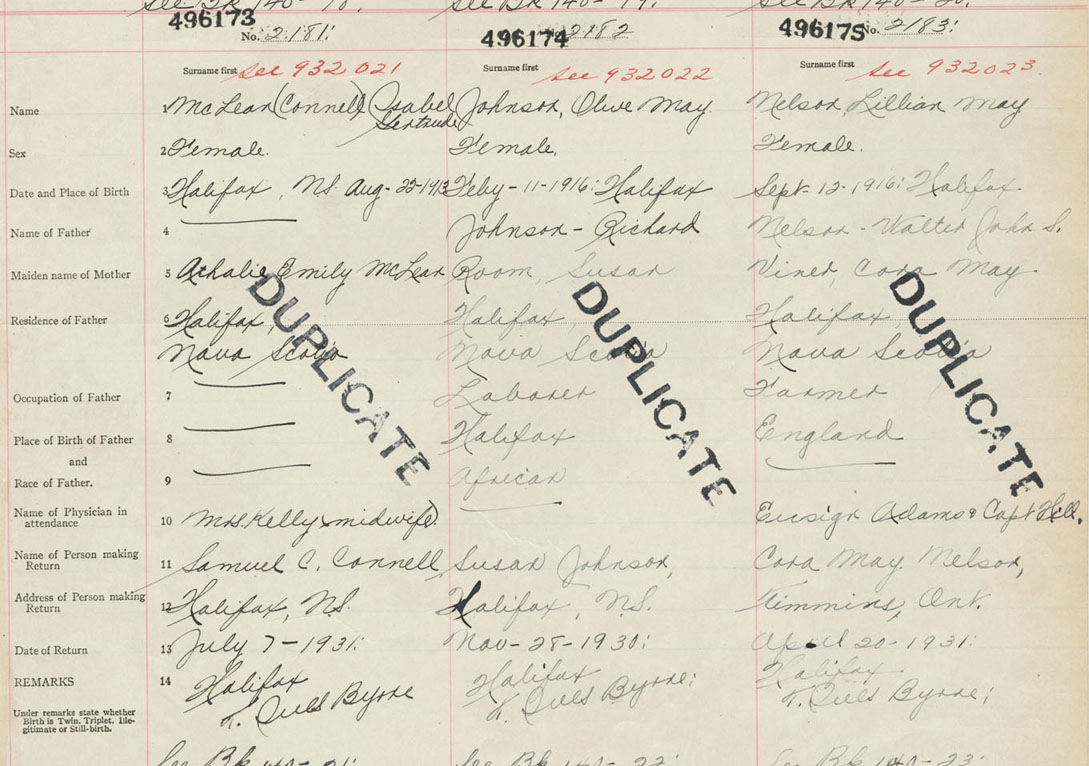 See Bk 140- 18. See Bk 140- 19. See Bk 140- 20.
496173 No. 2181. 496174 No. 2182 496175 No. 2183.
Surname first See 932021 Surname first See 932022 Surname first See 932023.
Name 1 McLean (Connell) Isabel Johnson, Olive May. Nelson, Lillian May
Gertrude
Sex 2 Female. Female. Female.
Date and Place of Birth 3 Halifax, NS. Aug- 22-1913 Feby- 11-1916: Halifax Sept- 12-1916: Halifax
Name of Father 4 Johnson - Richard Nelson - Walter John S.
Maiden name of Mother 5 Athalie Emily McLean Room, Susan Viner, Cora May.
Residence of Father 6 Halifax, Halifax, Halifax,
Nova Scotia Nova Scotia Nova Scotia
DUPLICATE DUPLICATE DUPLICATE
Occupation of Father 7 Laborer Farmer
Place of Birth of Father 8 Halifax England
and
Race of Father. 9 African
Name of Physician in
attendance 10 Mrs. Kelly (midwife). Ensign Adams & Capt Hill.
Name of Person making
Return 11 Samuel C. Connell, Susan Johnson, Cora May Nelson,
Address of Person making
Return 12 Halifax, NS. Halifax, NS. Timmins, Ont.
Date of Return 13 July 7-1931: Nov- 28-1930: April 20-1931:
REMARKS 14 Halifax Halifax Halifax
Byrne Byrne; Byrne;
Under remarks state whether
Birth is Twin, Triplet, Ille-
gitimate or Still-birth.
See Bk 140- 21: See Bk 140- 22: See Bk 140- 23: